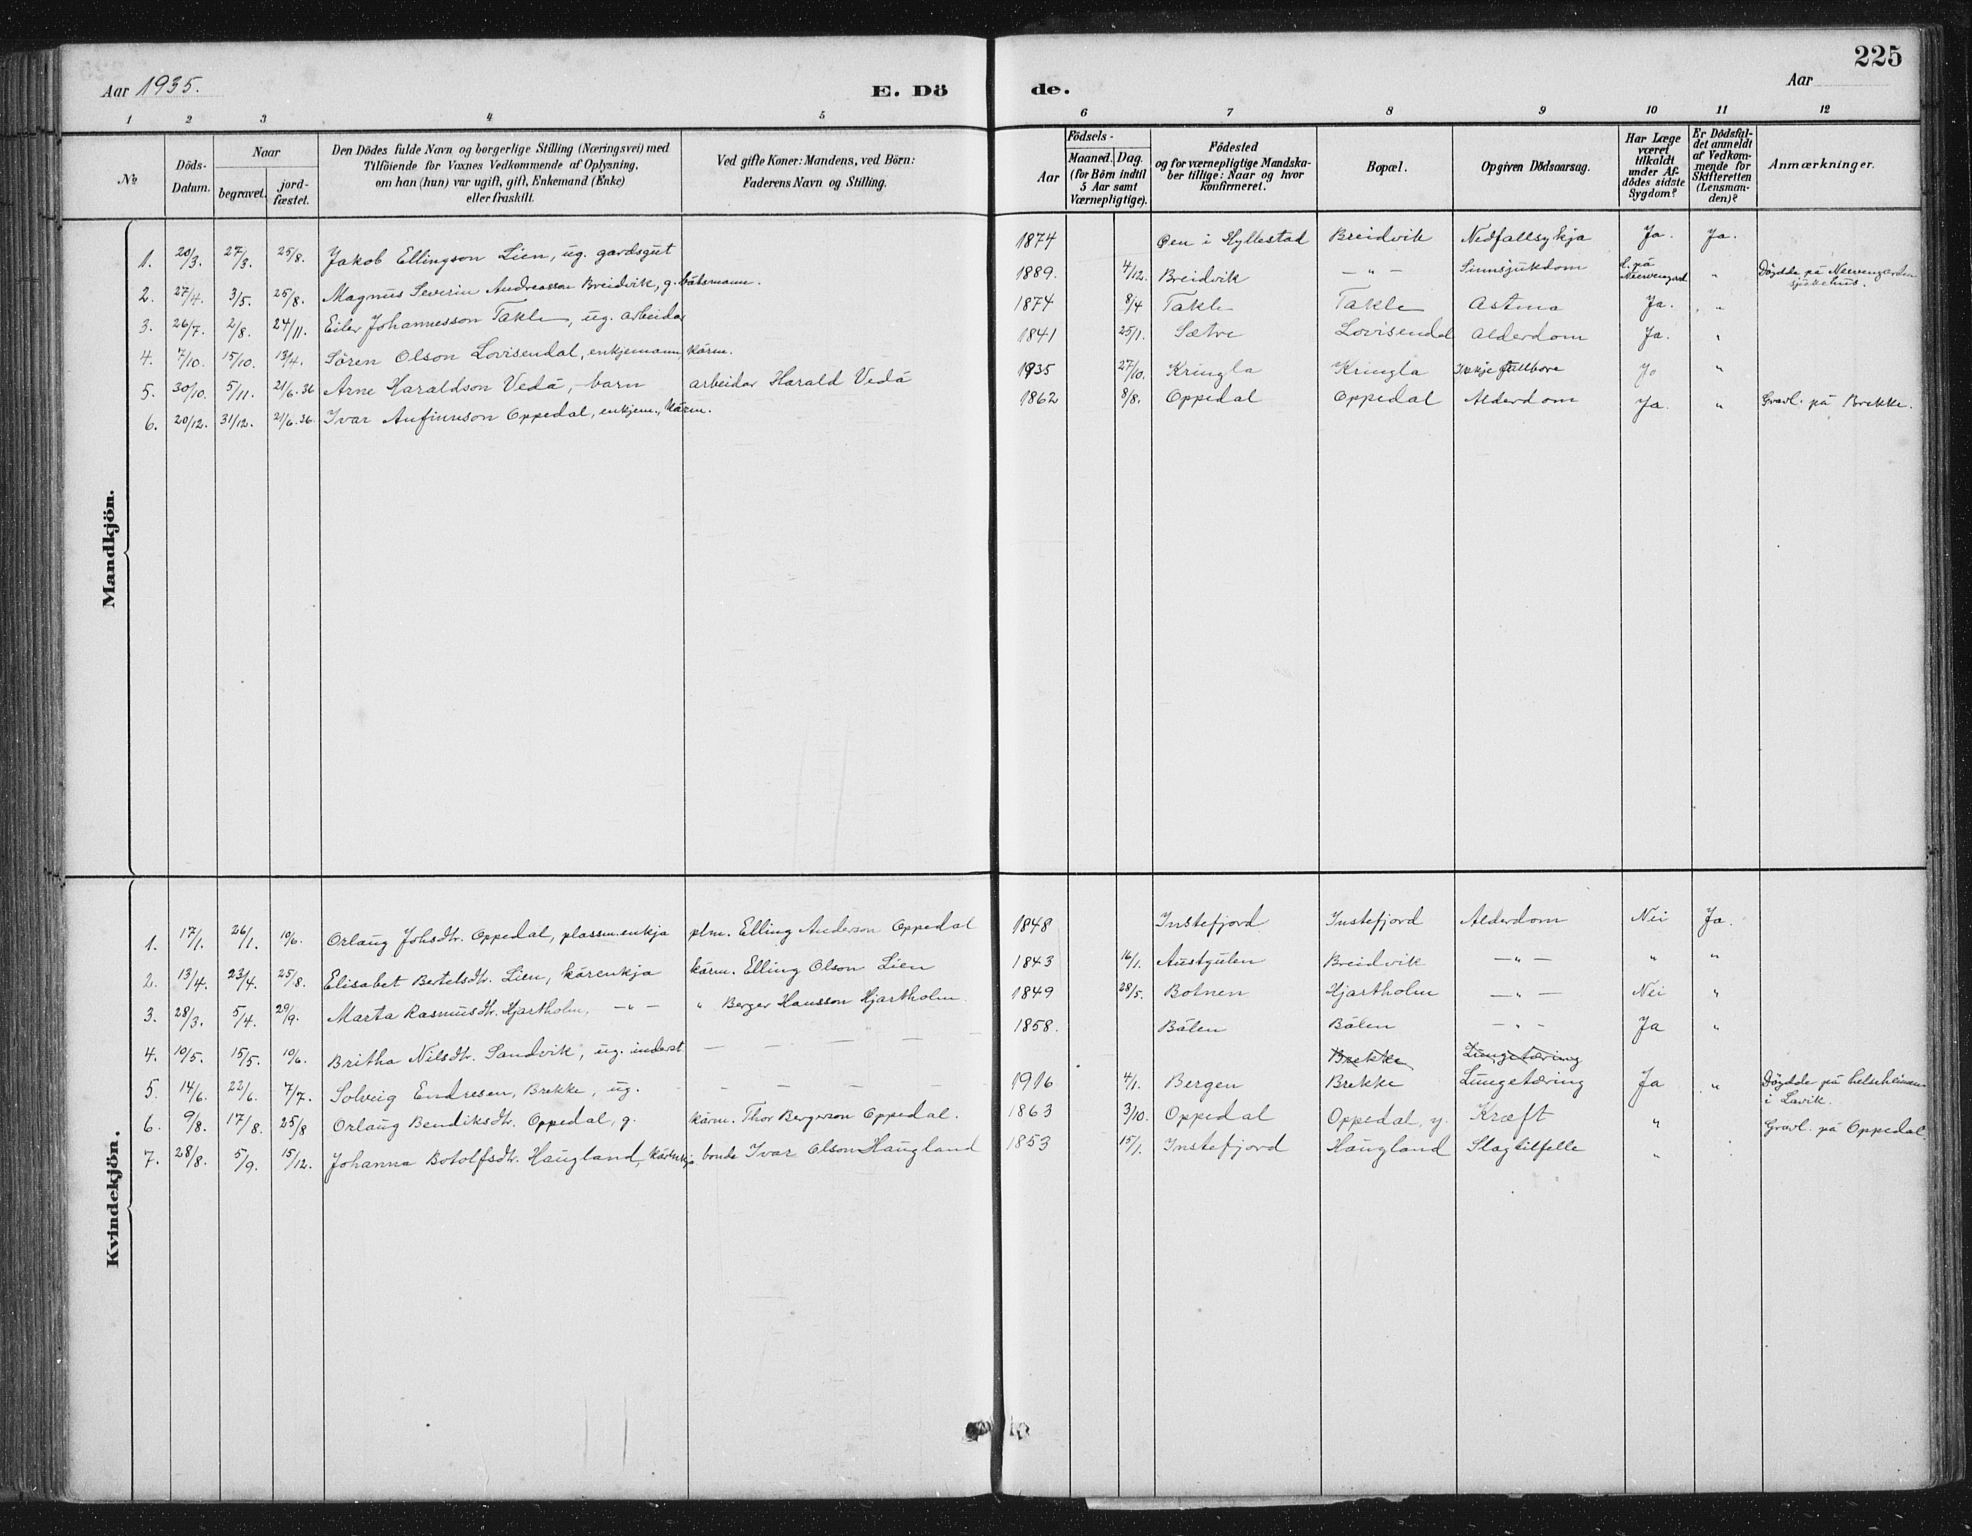 225
Aar 1935. E. Dö de. Aar
1 2 3 4 5 6 7 8 9 10 11 12
No
Döds-Datum.
Naar
begravet. jord-fæstet.
Den Dödes fulde Navn og borgerlige Stilling (Næringsvei) med
Tilföiende for Voxnes Vedkommende af Oplysning,
om han (hun) var ugift, gift, Enkemand (Enke)
eller fraskilt.
Ved gifte Koner: Mandens, ved Börn:
Faderens Navn og Stilling.
Födsels-
Aar
Maaned. Dag.
(for Börn indtil
5 Aar samt
Værnepligtige).
Födested
og for værnepligtige Mandska-
ber tillige: Naar og hvor
Konfirmeret.
Bopæl.
Opgiven Dödsaarsag.
Har Læge
været
tilkaldt
under Af-
dödes sidste
Sygdom?
Er Dödsfal-
det anmeldt
af Vedkom-
mende for
Skifteretten
(Lensman-
den)?
Anmærkninger.
Mandkjön.
1. 20/3. 27/3. 25/8. Jakob Ellingson Lien, ug. gardsgut 1874 Øen i Hyllestad Breidvik Nedfallsykja Ja. Ja.
2. 27/4. 3/5. 25/8. Magnus Severin Andreasson Breidvik, g. båtsmann. 1889. 4/12. Breidvik — " — Sinnsjukdom på " Döydde på
3. 26/7. 2/8. 24/11. Eiler Johannesson Takle, ug. arbeidar 1874 8/4 Takle Takle Astma Ja. "
4. 7/10. 15/10. 13/4. Sören Olson Lovisendal, enkjemann kårm. 1841 25/1. Sætre Lovisendal Alderdom Ja. "
5. 30/10. 5/11. 21/6.36 Arne Haraldson Vedå, barn arbeidar Harald Vedå 1935 27/10. Kringla Kringla Ikkje fullbore Ja "
6. 20/12. 31/12. 21/6.36. Ivar Anfinnson Oppedal, enkjem., kårm. 1862 8/8. Oppedal Oppedal Alderdom Ja. " Gravl. på Brekke.
Kvindekjön.
1. 17/1. 26/1. 10/6. Orlaug Johsdtr. Oppedal, plassm.enkja plm. Elling Anderson Oppedal 1848 Instefjord Instefjord Alderdom Nei Ja.
2. 13/4. 23/4. 25/8. Elisabet Bertelsdtr. Lien, kårenkja kårm. Elling Olson Lien 1843 16/1. Austgulen Breidvik — " — " "
3. 28/3. 5/4. 29/9. Marta Rasmusdtr. Hjartholm, — " — " Berger Hansson Hjartholm. 1849 28/5. Botnen Hjartholm — " — Nei "
4. 10/5. 15/5. 10/6. Britha Nilsdtr. Sandvik, ug. inderst — — — — 1858. Bölen Bölen — " — Ja "
Brekke Lungetæring
5. 14/6. 22/6. 7/7. Solveig Endresen, Brekke, ug. — — — — 1916 4/1. Bergen Brekke Lungetæring Ja " Döydde på helseheimen
i Lavik.
6. 9/8. 17/8. 25/8 Orlaug Bendiksdtr. Oppedal, g. kårm. Thor Bergerson Oppedal. 1863 3/10. Oppedal Oppedal, y. Kræft " Gravl. på Oppedal.
7. 28/8. 5/9. 15/12. Johanna Botolfsdtr. Haugland, kårenkja bonde Ivar Olson Haugland 1853 15/1. Instefjord Haugland Slagtilfelle "